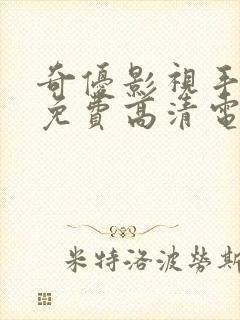 奇優影視手
免費高清電
米特洛波勞斯